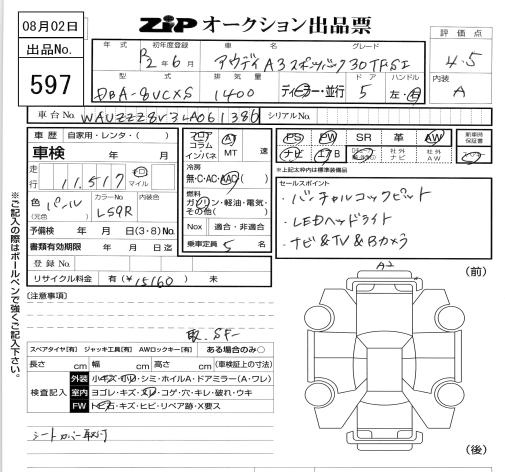 08月02日
ZIP オークション出品票
出品No.
597
年式 初年度登録 車名 グレード 評価点
R2年6月 アウディA3スポーツバック30TFSI 4.5
型式 排気量 ドア ハンドル 内装
DBA-8VCXS 1400 ディーラー・並行 5 左・右 A
車台No. WAUZZZ8V3LA061386 シリアルNo.
車歴 自家用・レンタ( )
車検 年 月
走行 11,517 キロ マイル
色(元色) パール カラーNo. LS9R 内装色
予備検 年 月 日(3・8)ヶ月
書類有効期限 年 月 日迄
登録No.
リサイクル料金 有(¥15160) 未
フロア コラム インパネ AT MT 速
冷房
無・C・AC・AAC
燃料
ガソリン・軽油・電気・その他( )
Nox 適合・非適合
乗車定員 5 名
PS PW SR 革 AW 新車時保証書
ナビ TV 社外ナビ 社外AW
※上記太枠内は標準装備品
セールスポイント
・バーチャルコックピット
・LEDヘッドライト
・ナビ&TV&Bカメラ
※ご記入の際はボールペンで強くご記入下さい。
[注意事項]
取、SF-
スペアタイヤ[有] ジャッキ工具[有] AWロックキー[有] ある場合のみ○
長さ cm 幅 cm 高さ cm (車検証上の寸法)
検査記入
外装 小キズ・凹・シミ・ホイルA・ドアミラー(A・ワレ)
室内 ヨゴレ・キズ・スレ・コゲ・穴・キレ・破れ・ウキ
FW トビ石・キズ・ヒビ・リペア跡・X要ス
シートカバー取付
A2
(前)
(後)